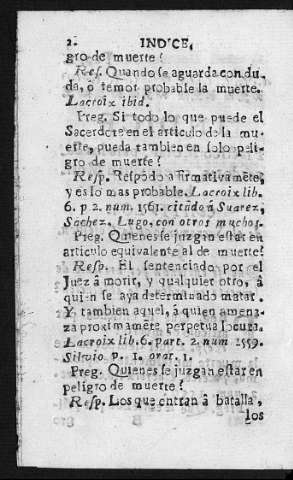 2. INDICE,
gro de muerte?
Res. Quando se aguarda con du-
da, ò temor probable la muerte.
Lacroix ibid.
Preg. Si todo lo que puede el
Sacerdote en el articulo de la mu-
erte, pueda tambien en solo peli-
gro de muerte?
Resp. Respōdo afirmativamēte,
y es lo mas probable. Lacroix lib.
6. p 2. num. 1561. citādo â Suarez,
Sāchez, Lugo, con otros muchos.
Preg. Quienes se juzgan estar en
articulo equivalente al de muerte?
Resp. El sentenciado por el
Juez â morir, y qualquier otro, â
quien se aya determinado matar.
Y tambien aquel, â quien amena-
za proximamēte perpetua locura.
Lacroix lib. 6. part. 2. num 1559.
Silvio p. 1. orat. 1.
Preg. Quienes se juzgan estar en
peligro de muerte?
Resp. Los que entran â batalla,
los